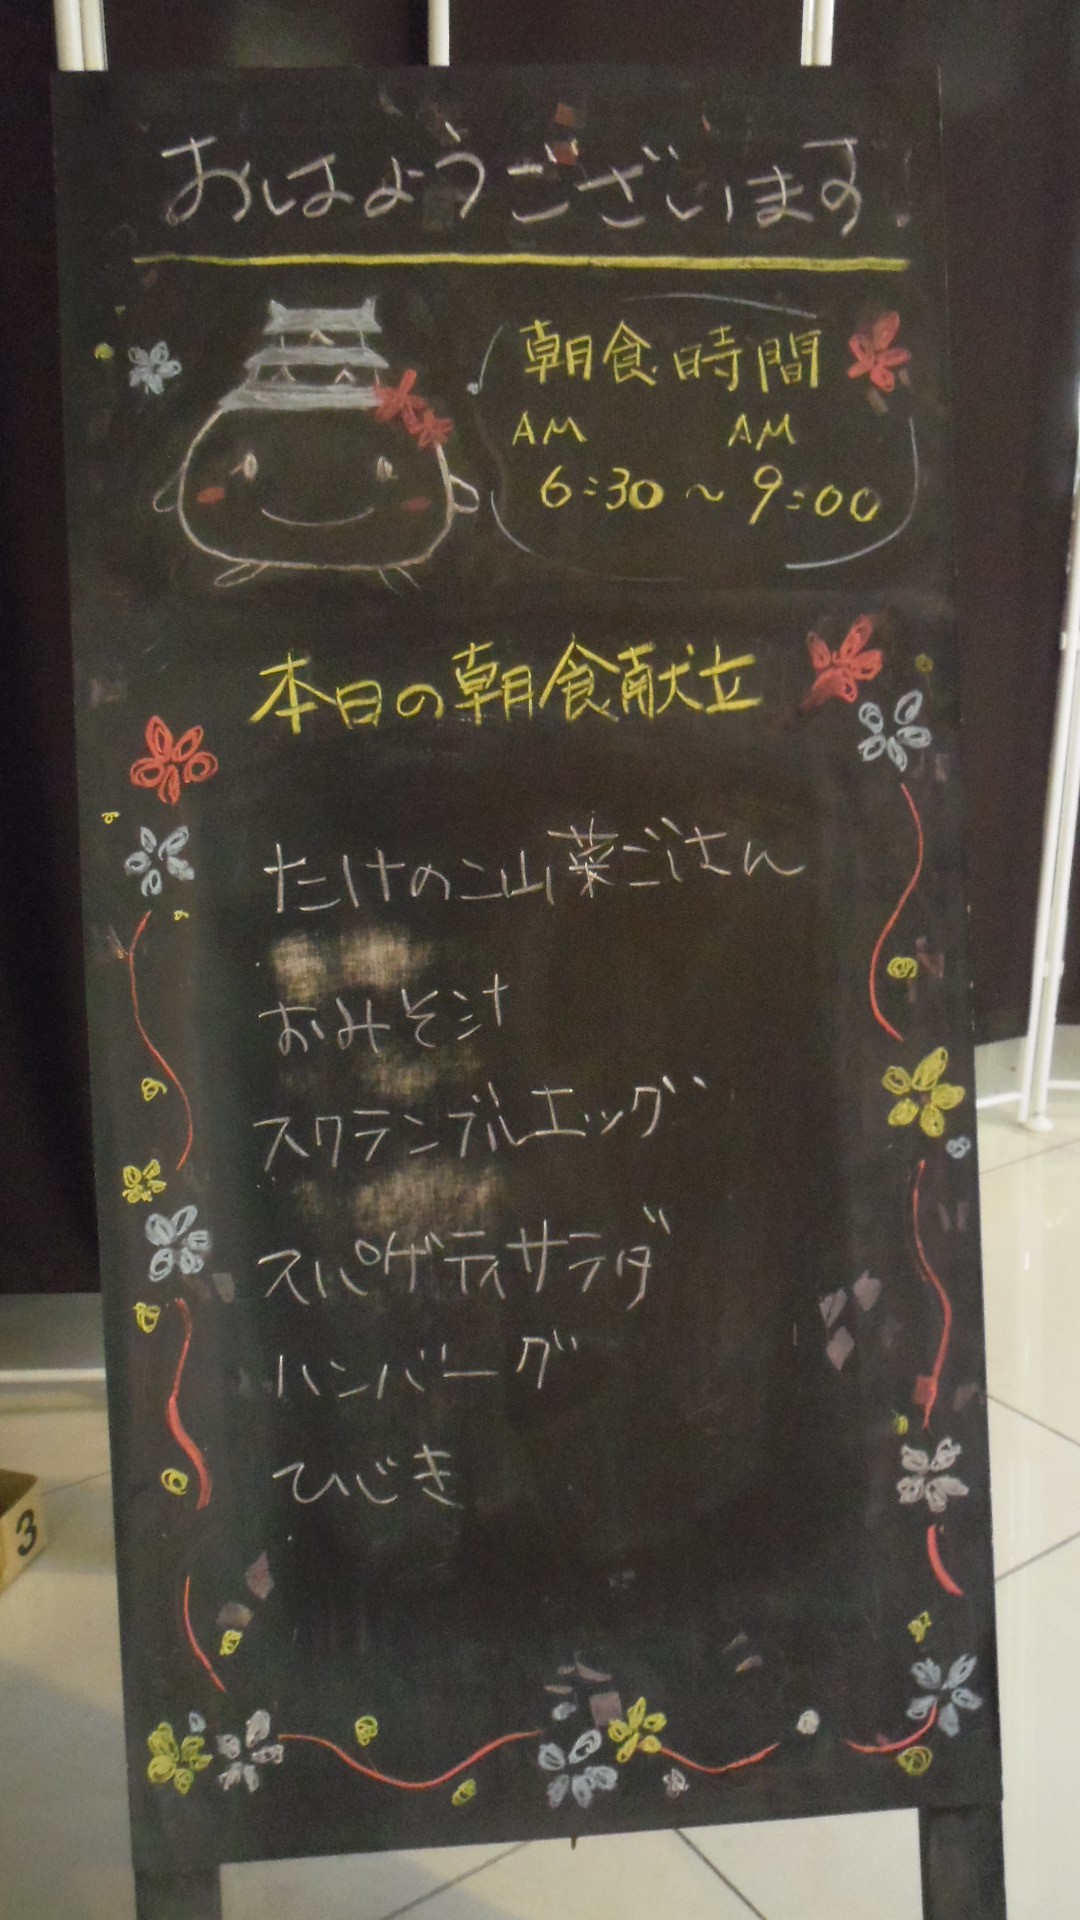 おはようございます
朝食時間
AM AM
6:30～9:00
本日の朝食献立
たけのこ山菜ごはん
おみそ汁
スクランブルエッグ
スパゲティサラダ
ハンバーグ
ひじき
3